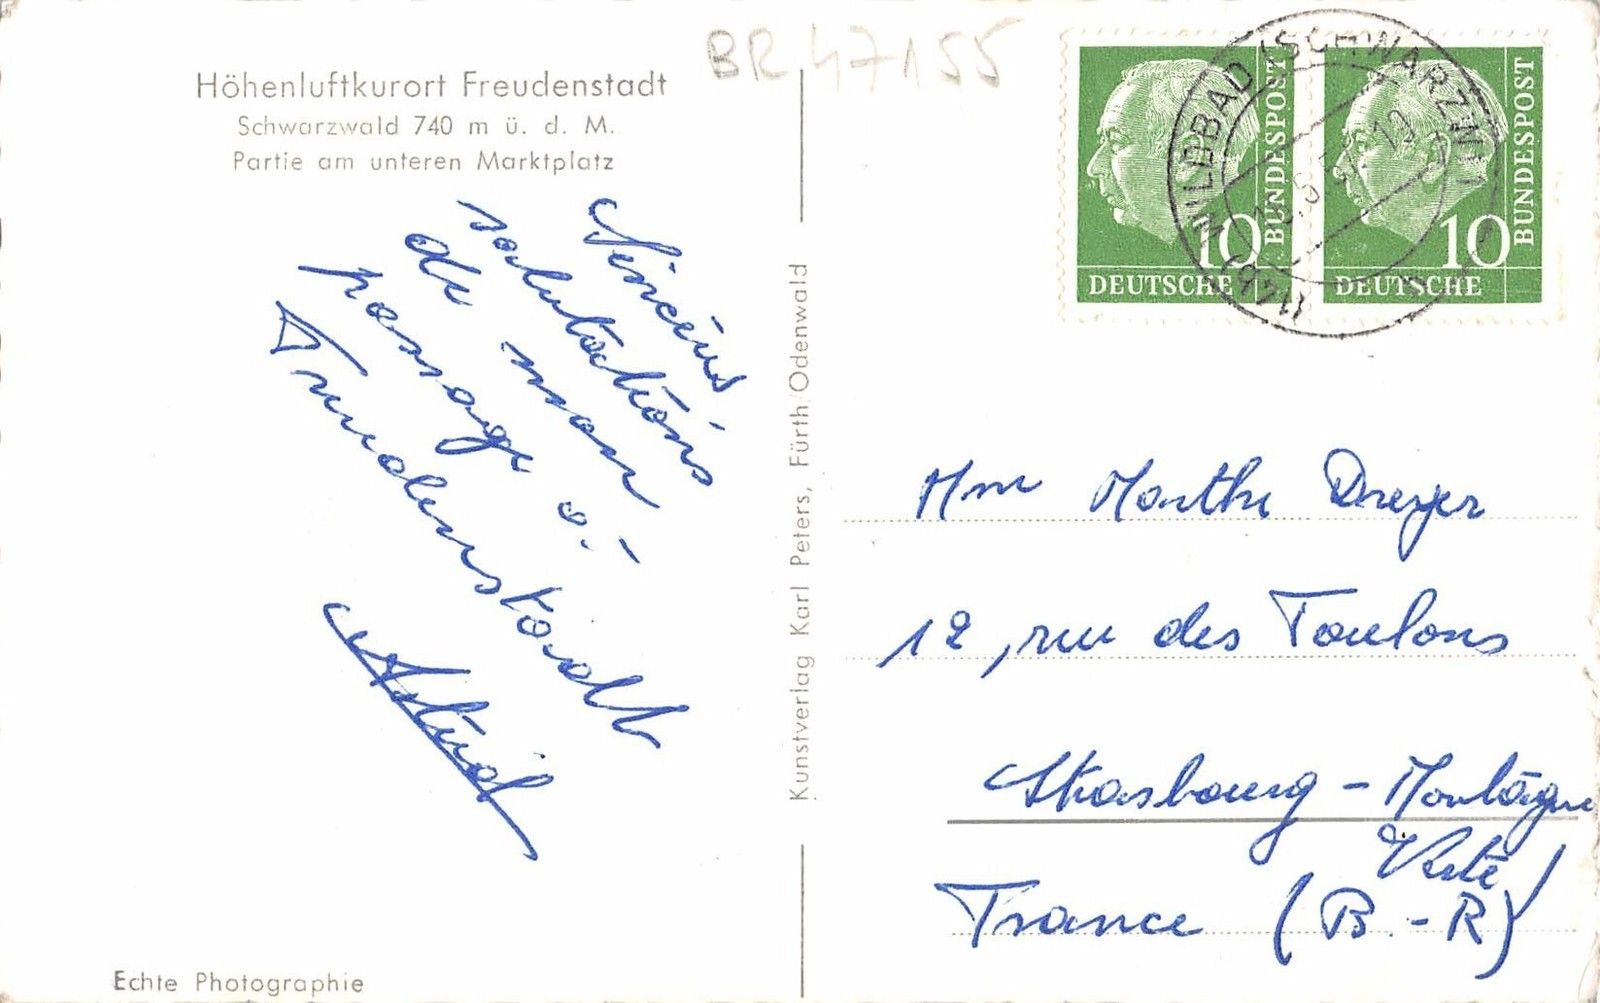 BR 47155
Höhenluftkurort Freudenstadt
Schwarzwald 740 m ü. d. M.
Partie am unteren Marktplatz
Sincères
salutations
de mon
passage à
Freudenstadt
Kunstverlag Karl Peters, Fürth/Odenwald
Echte Photographie
10
BUNDESPOST
DEUTSCHE
10
BUNDESPOST
DEUTSCHE
WILDBAD (SCHWARZW)
Mme Marthe Dreyer
12, rue des Foulons
Strasbourg - Montagne
Verte
France (B.-R)